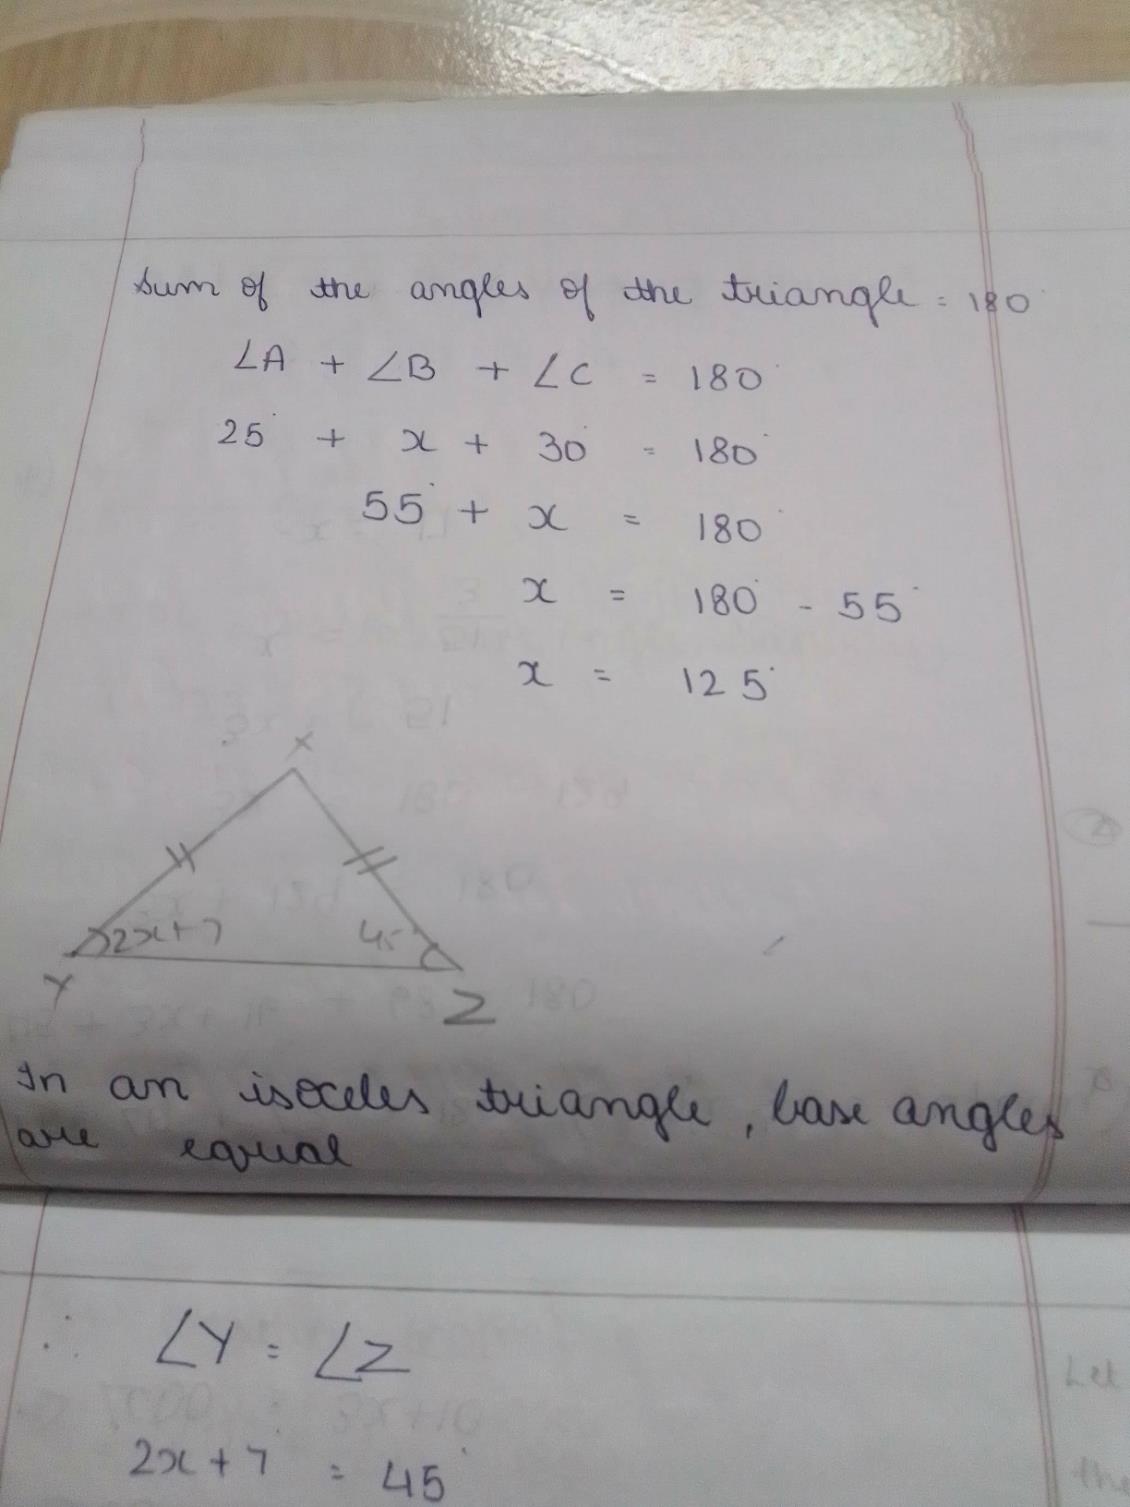 Sum of the angles of the triangle = 180°
∠A + ∠B + ∠C = 180°
25° + x + 30° = 180°
55° + x = 180°
x = 180° - 55°
x = 125°
X
2x+7 45°
Y Z
In an isoceles triangle, base angles
are equal
∴ ∠Y = ∠Z
Let
2x + 7° = 45°
the